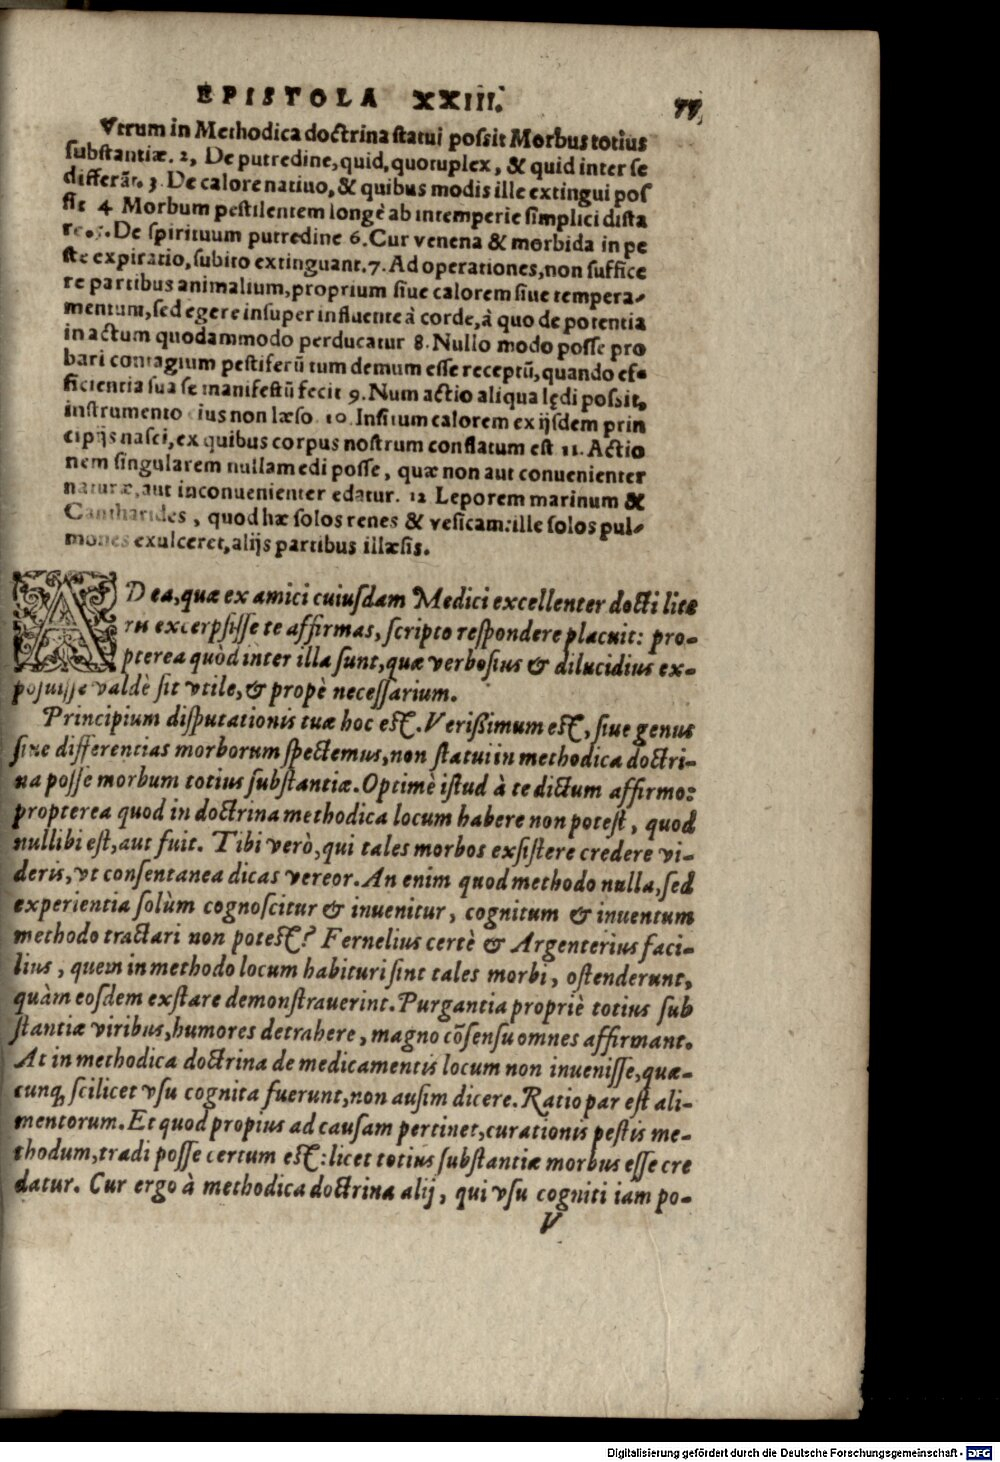 EPISTOLA XXIII. 77
Vtrum in Methodica doctrina statui possit Morbus totius
substantiæ. 2, De putredine, quid, quotuplex, & quid inter se
differãt. 3 De calore natiuo, & quibus modis ille extingui pos
sit 4 Morbum pestilentem longè ab intemperie simplici dista
re. 5. De spirituum putredine 6. Cur venena & morbida in pe
ste expiratio, subito extinguant. 7. Ad operationes, non suffice
re partibus animalium, proprium siue calorem siue tempera-
mentum, sed egere insuper influente à corde, à quo de potentia
in actum quodammodo perducatur 8. Nullo modo posse pro
bari contagium pestiferũ tum demum esse receptũ, quando ef-
ficientia sua se manifestũ fecit 9. Num actio aliqua lędi possit,
instrumento eius non læso 10. Insitum calorem ex ijsdem prin
cipijs nasci, ex quibus corpus nostrum conflatum est 11. Actio
nem singularem nullam edi posse, quæ non aut conuenienter
naturæ, aut inconuenienter edatur. 12 Leporem marinum &
Cantharides, quod hæ solos renes & vesicam: ille solos pul-
mones exulceret, alijs partibus illæsis.
AD ea, quæ ex amici cuiusdam Medici excellenter docti lite
ris excerpsisse te affirmas, scripto respondere placuit: pro-
pterea quòd inter illa sunt, quæ verbosius & dilucidius ex-
posuisse valdè sit vtile, & propè necessarium.
Principium disputationis tuæ hoc est. Verißimum est, siue genus
siue differentias morborum spectemus, non statui in methodica doctri-
na posse morbum totius substantiæ. Optimè istud à te dictum affirmo:
propterea quod in doctrina methodica locum habere non potest, quod
nullibi est, aut fuit. Tibi verò, qui tales morbos exsistere credere vi-
deris, vt consentanea dicas vereor. An enim quod methodo nulla, sed
experientia solùm cognoscitur & inuenitur, cognitum & inuentum
methodo tractari non potest? Fernelius certè & Argenterius faci-
lius, quem in methodo locum habituri sint tales morbi, ostenderunt,
quàm eosdem exstare demonstrauerint. Purgantia propriè totius sub
stantiæ viribus, humores detrahere, magno cõsensu omnes affirmant.
At in methodica doctrina de medicamentis locum non inuenisse, quæ-
cunq; scilicet vsu cognita fuerunt, non ausim dicere. Ratio par est ali-
mentorum. Et quod propius ad causam pertinet, curationis pestis me-
thodum, tradi posse certum est: licet totius substantiæ morbus esse cre
datur. Cur ergo à methodica doctrina alij, qui vsu cogniti iam po-
V
Digitalisierung gefördert durch die Deutsche Forschungsgemeinschaft - DFG